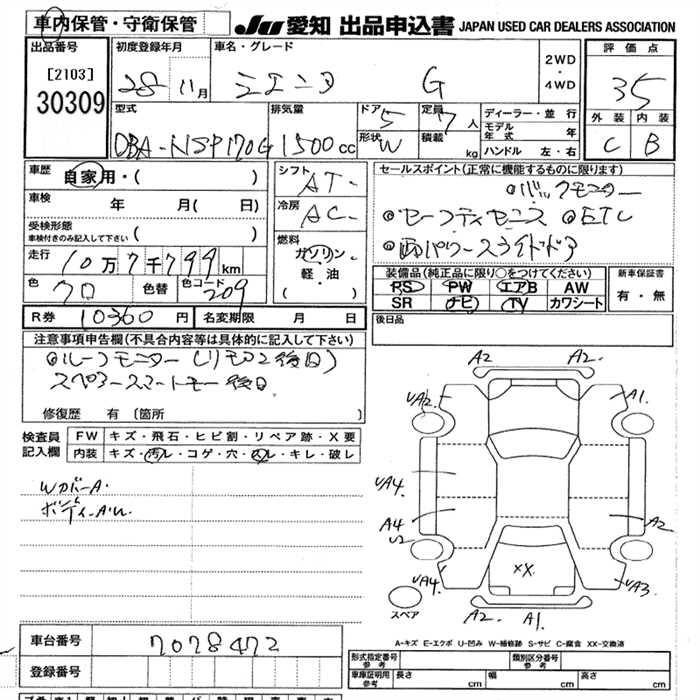 車内保管・守衛保管
JU 愛知 出品申込書 JAPAN USED CAR DEALERS ASSOCIATION
出品番号
[2103]
30309
初度登録年月
28 11月
車名・グレード
シエンタ G
2WD
・
4WD
評価点
35
外装 内装
C B
型式
DBA-NSP170G
排気量
1500cc
ドア 5
形状 W
定員 7人
積載 kg
ディーラー・並行
モデル年式 年
ハンドル 左・右
車歴
自家用・( )
車検
年 月(日)
受検形態
車検付きのみ記入して下さい ( )
走行
10万7千799km
色
クロ
色替
色コード
209
シフト
AT-
冷房
AC-
燃料
ガソリン
軽・油
( )
セールスポイント(正常に機能するものに限ります)
◎バックモニター
◎セーフティセンス ◎ETC
◎両パワースライドドア
装備品(純正品に限り○をつけてください)
PS PW エアB AW
SR ナビ TV カワシート
新車保証書
有・無
後日品
R券 10360円
名変期限 月 日
注意事項申告欄(不具合内容等は具体的に記入して下さい)
◎ルーフモニター(リモコン後日)
スペアースマートキー後日
修復歴 有 〔箇所 〕
検査員記入欄
FW キズ・飛石・ヒビ割・リペア跡・X要
内装 キズ・汚レ・コゲ・穴・スレ・キレ・破レ
WカバーA.
ボディーA.U.
A2 A2.
UA2. A1.
UA4.
A4 U2 A2
XX.
UA4. UA3.
A2. A1.
スペア
A-キズ E-エクボ U-凹み W-補修跡 S-サビ C-腐食 XX-交換済
車台番号
7028472
登録番号
形式指定番号 参考
類別区分番号 参考
車庫証明用 参考
長さ cm 幅 cm 高さ cm